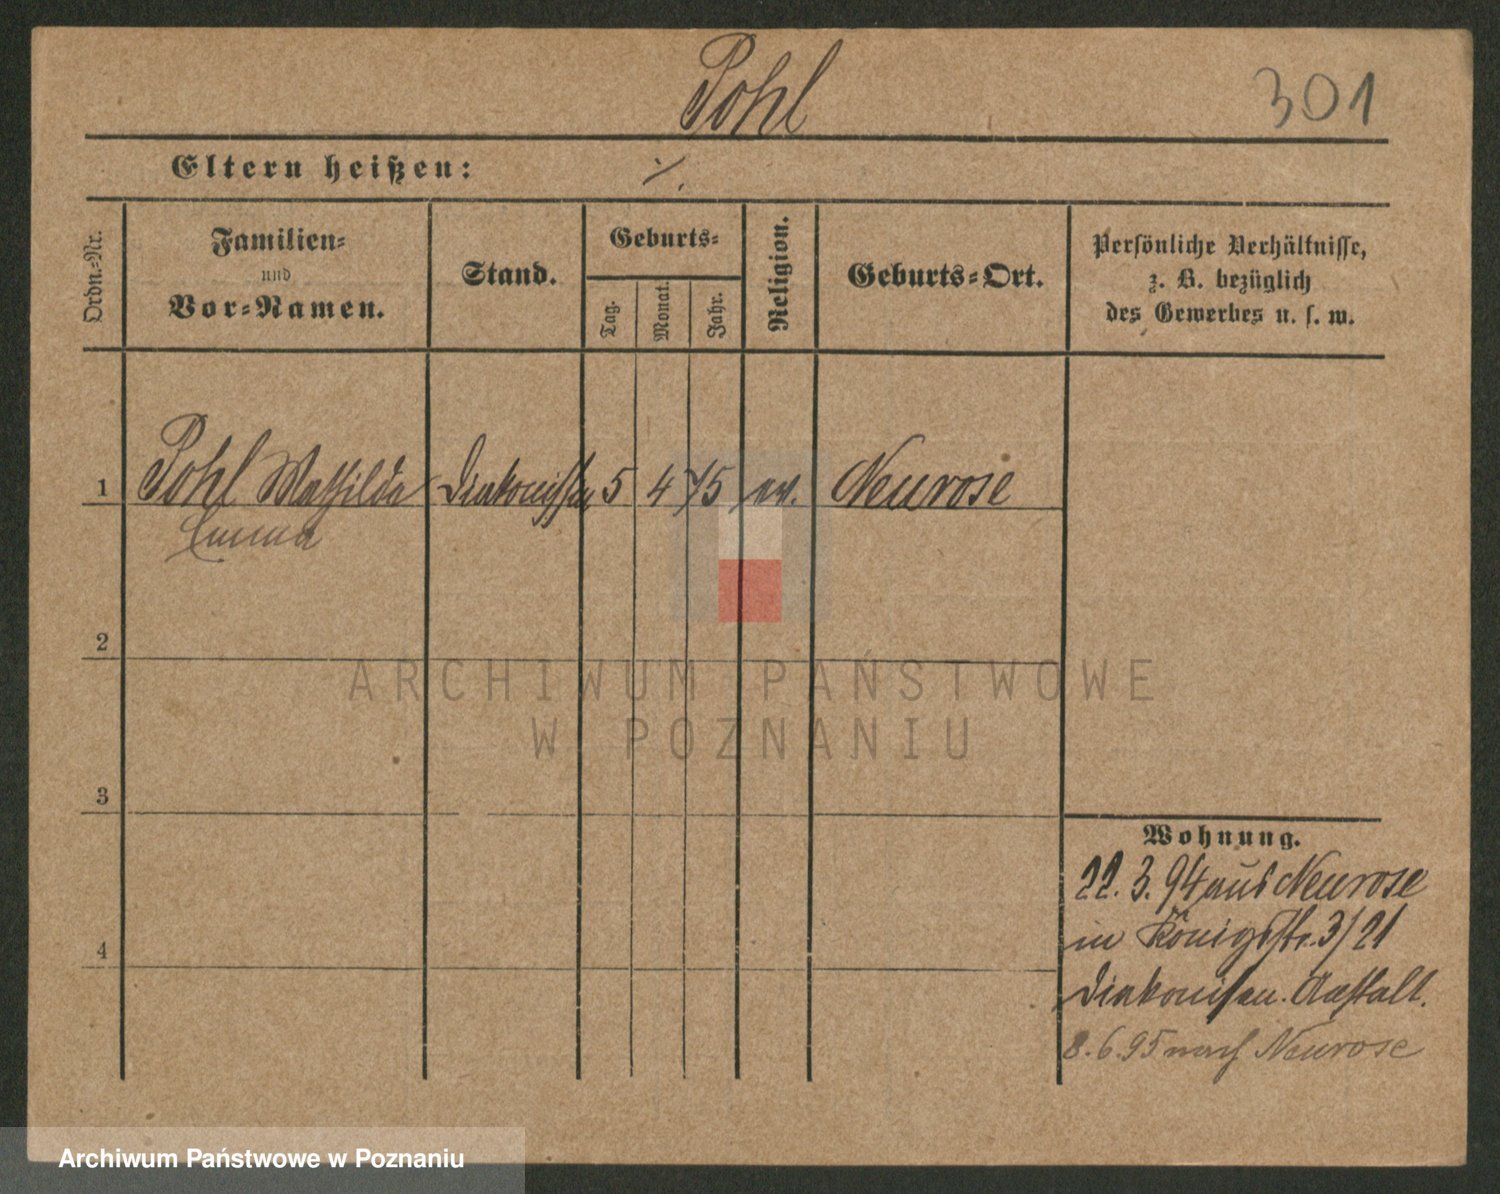 Pohl
301
Eltern heißen: ./.
Ordn.-Nr.
Familien-
und
Vor-Namen.
Stand.
Geburts-
Tag.
Monat.
Jahr.
Religion.
Geburts-Ort.
Persönliche Verhältnisse,
z. B. bezüglich
des Gewerbes u. s. w.
1 Pohl Mathilde Diakonissin 5 4 75 ev. Neurose
Emma
2
ARCHIWUM PAŃSTWOWE
W POZNANIU
3
Wohnung.
22. 3. 94 aus Neurose
in Königsstr. 3/21
4
Diakonissen. Anstalt.
8. 6. 95 nach Neurose
Archiwum Państwowe w Poznaniu